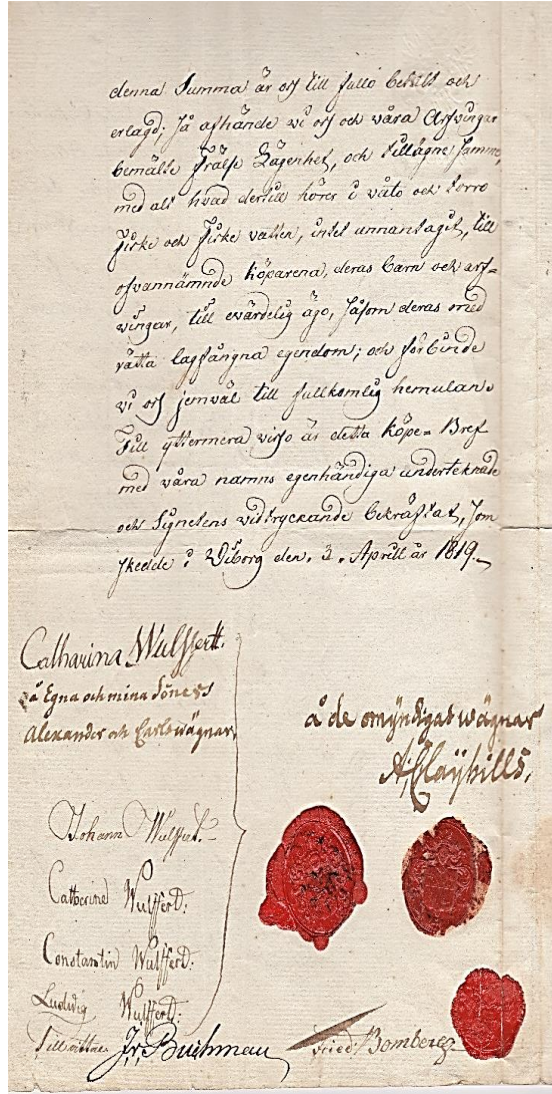 denna Summa är oss till fullo betalt och
erlagd; Så afhände vi oss och våra Arfvingar
bemälte Frälse Lägenhet, och tillägne samma,
med alt hvad dertill hörer i våto och torro
Fiske och Fiske vatten, intet unnantagit, till
ofvannämnde köparena, deras barn och arf=
vingar, till evärdelig ägo, såsom deras med
rätta lagfångna egendom; och förbinde
vi oss jemväl till fullkomlig hemulan.
Till yttermera visso är detta köpe=Bref
med våra namns egenhändiga underteknade
och Signetens vidtryckande bekräftat, som
skedde i Wiborg den. 3. Aprill år 1819.
Catharina Wulffert.
å Egna och mina Söners
Alexander och Carls wägnar,
å de omyndigas wägnar
A, Clayhills,
Johann Wulffert.
Catherine Wulffert:
Constantin Wulffert:
Ludvig Wulffert:
Till vittne. Buchmeau
Fried: Bomberg